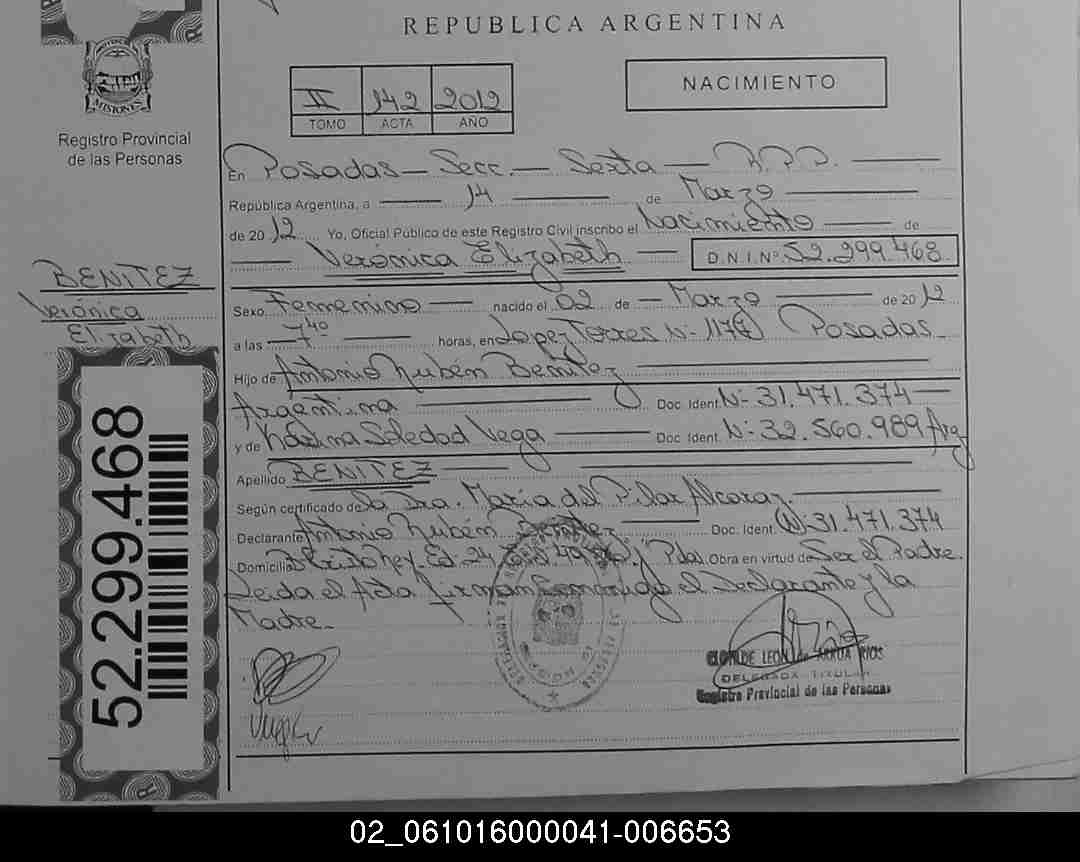 REPUBLICA ARGENTINA
MISIONES
Registro Provincial
de las Personas
II 142 2012
TOMO ACTA AÑO
NACIMIENTO
En Posadas - Secc. - Sexta - R.P.P.
República Argentina, a 14 de Marzo
de 2012 Yo, Oficial Público de este Registro Civil inscribo el Nacimiento de
Verónica Elizabeth D.N.I.Nº 52.299.468
BENITEZ
Verónica
Elizabeth
Sexo Femenino nacido el 02 de Marzo de 2012
a las 7 40 horas, en Lopez Torres Nº 1177 Posadas
Hijo de Antonio Rubén Benitez
Argentina Doc. Ident. Nº 31.471.374
y de Soledad Vega Doc. Ident. Nº 32.560.989 Arg
Apellido BENITEZ
Según certificado de la Dra. Maria del Pilar Alcaraz
Declarante Antonio Rubén Benitez Doc. Ident. Nº 31.471.374
Domicilio Obra en virtud de Ser el Padre.
Leida el Acta firman conmigo el Declarante y la
Madre.
52.299.468
DELEGADA TITULAR
Registro Provincial de las Personas
02_061016000041-006653